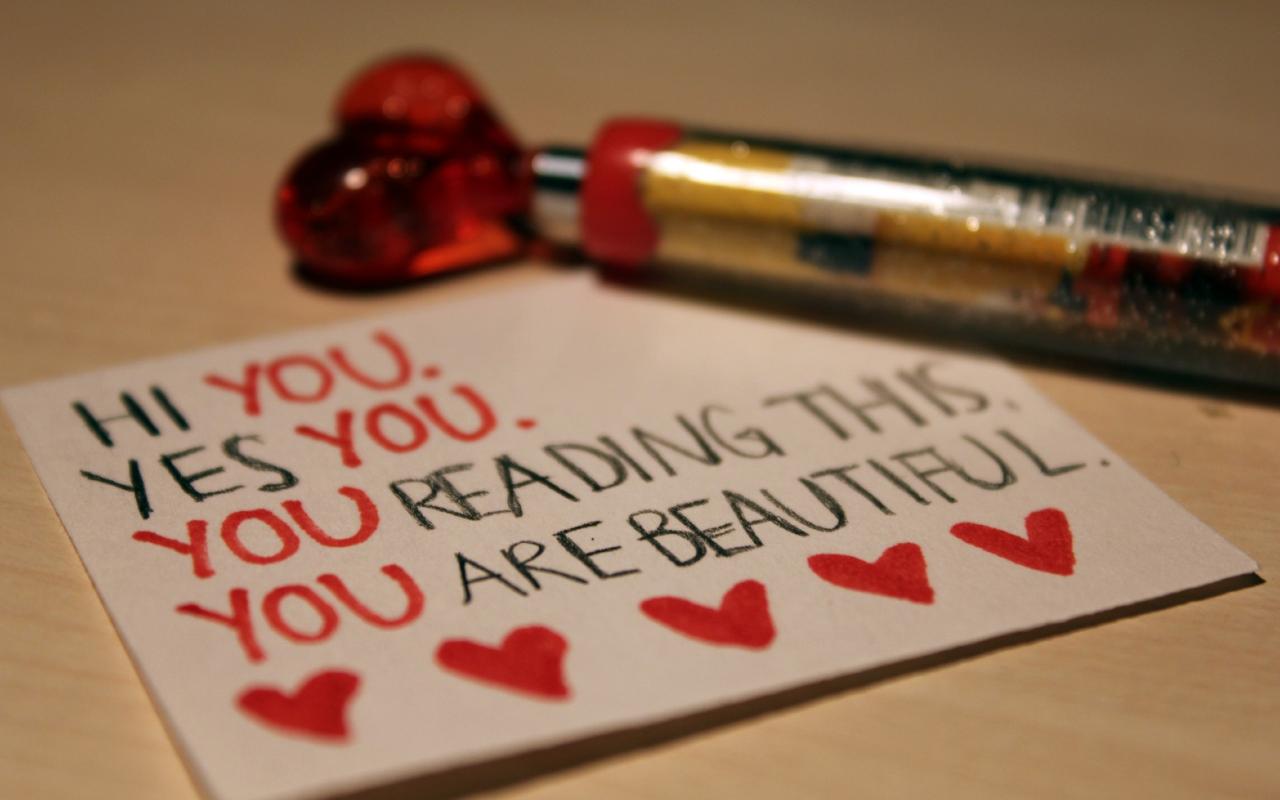 HI YOU.
YES YOU.
YOU READING THIS.
YOU ARE BEAUTIFUL.